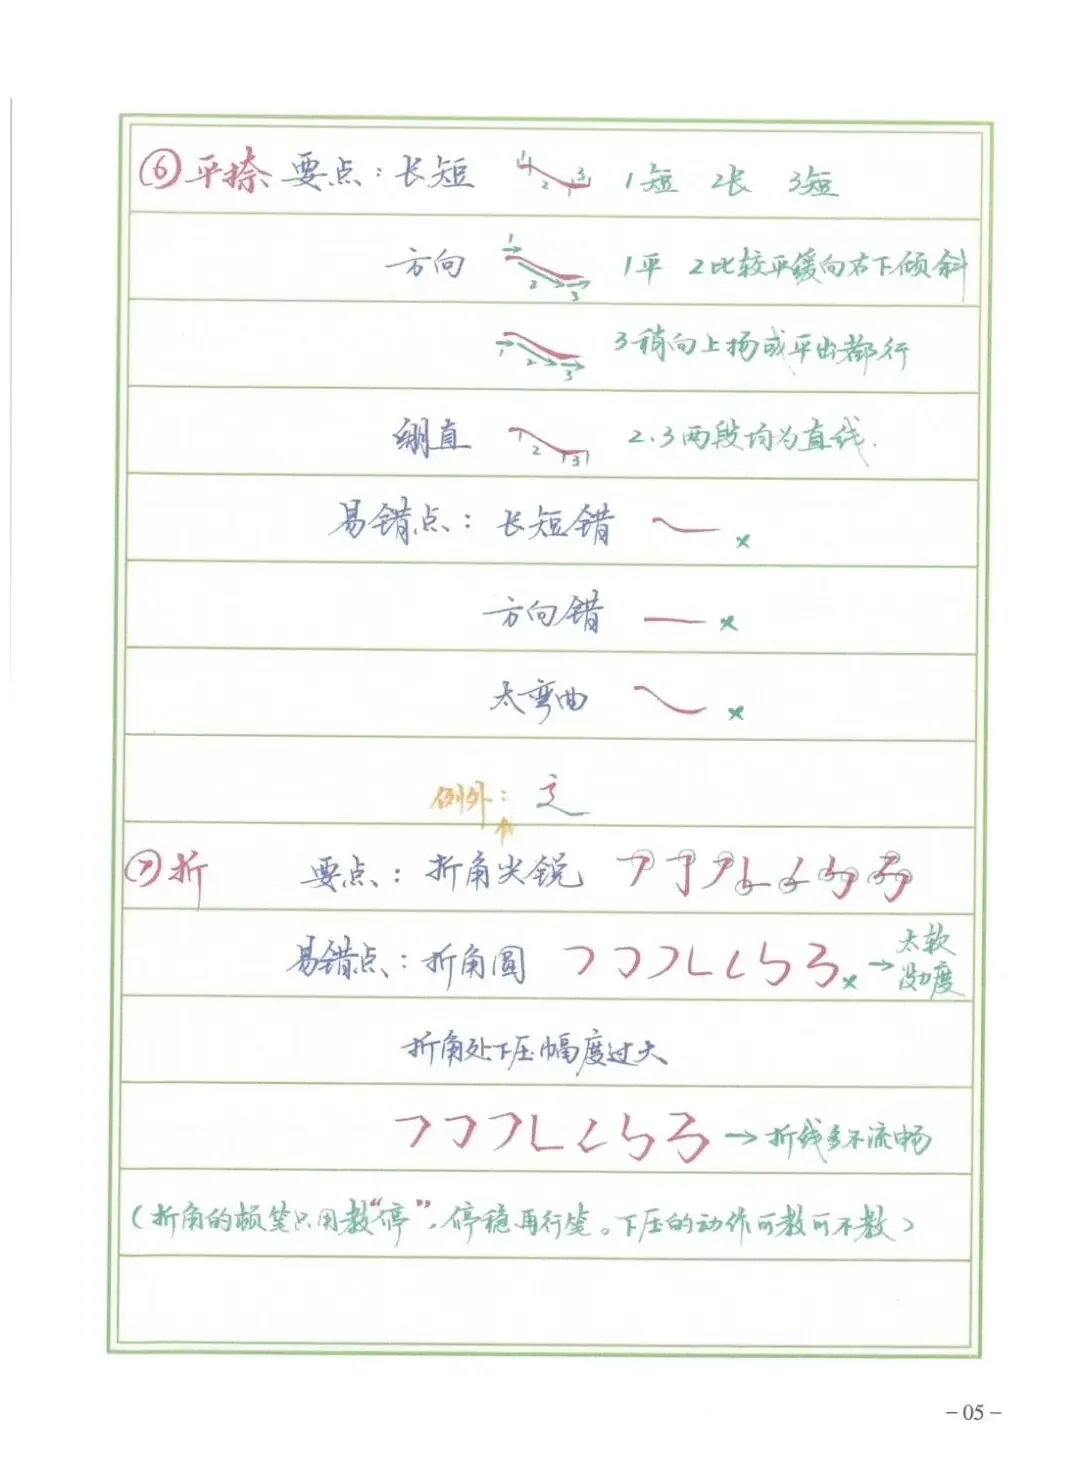 ⑥平捺 要点：长短 1 2 3 1短 2长 3短
方向 1 2 3 1平 2比较平缓向右下倾斜
1 2 3 3稍向上扬或平出都行
绷直 1 2 3 2.3两段均为直线.
易错点：长短错 ×
方向错 ×
太弯曲 ×
例外：辶
⑦折 要点：折角尖锐
易错点：折角圆 × → 太软
没力度
折角处下压幅度过大
→ 折线多不流畅
（折角的顿笔只用教“停”，停稳再行笔。下压的动作可教可不教）
-05-